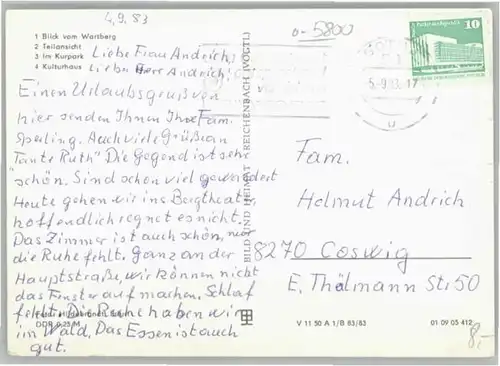 4.9.83
o-5800
1 Bild vom Wartberg
2 Teilansicht
3 Im Kurpark
4 Kulturhaus
Liebe Frau Andrich,
Lieber Herr Andrich!
Einen Urlaubsgruß von
hier senden Ihnen Ihre Fam.
Sperling. Auch viele Grüße an
Tante Ruth" Die Gegend ist sehr
schön. Sind schon viel gewandert
Heute gehen wir ins Bergtheater,
hoffendlich regnet es nicht.
Das Zimmer ist auch schön, nur
die Ruhe fehlt. Ganz an der
Hauptstraße, wir können nicht
das Fenster auf machen. Schlaf
fehlt. Die Ruhe haben wir
im Wald. Das Essen ist auch
gut.
DDR 0,25 M
BILD UND HEIMAT REICHENBACH (VOGTL)
10
5.-9.83.-17
Fam.
Helmut Andrich
8270 Coswig
E. Thälmann Str 50
V 11 50 A 1/B 83/83
01 09 05 412
8,-